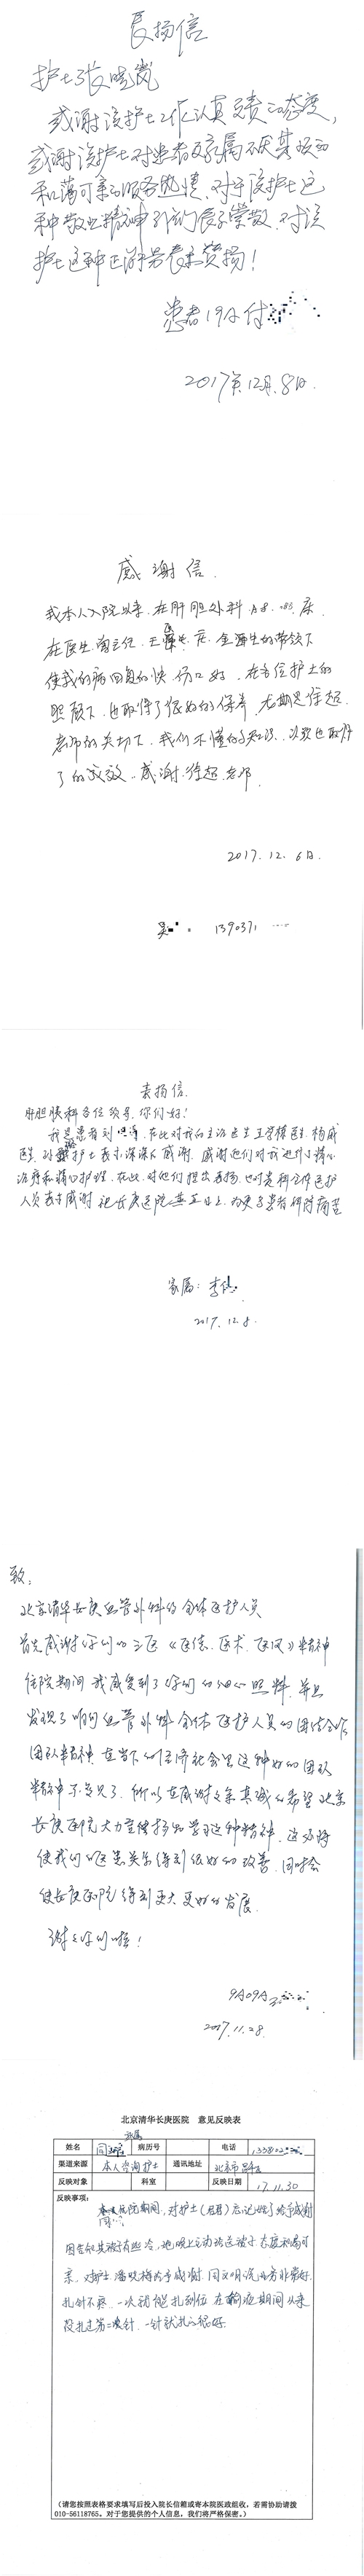 表扬信
护士张晓岚
感谢该护士工作认真负责的态度,
感谢该护士对患者及家属不厌其烦的
和蔼可亲的服务热情、对于该护士这
种敬业精神我们表示崇敬、对该
护士这种正能量表示赞扬!
患者19床付
2017年12月8日.
感谢信.
我本人入院以来.在肝胆外科 床.
在医生 主任.王 的带领下
使我的病回复的快 伤口好.在各位护士的
照顾下.也取得了很好的保养.尤期是徐超
老师的关切下.我们不懂的知识.以致也取得
了的成效.感谢.徐超.老师.
2017.12.6日.
吴 1390371
表扬信.
肝胆胰科各位领导.你们好!
我是患者刘 .在此对我的主治医生王学栋医生.杨威
医生. 护士表示深深的感谢.感谢他们对我进行的精心
治疗和精心护理.在此.对他们提出表扬.也对贵科全体医护
人员表示感谢 祝长庚医院蒸蒸日上.为更多患者解除病苦
家属:李
2017.12.8.
致:
北京清华长庚血管外科的全体医护人员
首先感谢你们的三医《医德、医术、医风》精神
住院期间我感受到了你们的细心照料.并且
发现了咱们血管外科全体医护人员的团结合作
团队精神.在当下的经济社会里这种好的团队
精神不多见了.所以在感谢之余真诚的希望北京
长庚医院大力宣传扬和学习这种精神.这必将
使我们的医患关系得到很好的改善.同时会
使长庚医院得到更大更好的发展.
谢谢你们啦!
9A09A
2017.11.28.
北京清华长庚医院 意见反映表
姓名 病历号 电话 1338102
渠道来源 本人咨询护士 通讯地址 北京市昌平区
反映对象 科室 反映日期 17.11.30
反映事项:
住院期间,对护士
因 被子有些冷,她晚上主动给送被子态度和蔼可
亲,对护士潘晓梅给予感谢 业务非常好.
扎针不疼.一次就能扎到位在输液期间从来
没扎过第二次针.一针就扎的很好.
(请您按照表格要求填写后投入院长信箱或寄本院医政组收,若需协助请拨
010-56118765。对于您提供的个人信息,我们将严格保密。)